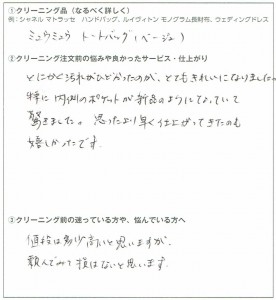 ①クリーニング品（なるべく詳しく）
例：シャネル マトラッセ ハンドバッグ、ルイヴィトン モノグラム長財布、ウェディングドレス
ミュウミュウ トートバッグ(ベージュ)
②クリーニング注文前の悩みや良かったサービス・仕上がり
とにかく汚れがひどかったのが、とてもきれいになりました。
特に内側のポケットが新品のようになっていて
驚きました。思ったより早く仕上がってきたのも
嬉しかったです。
③クリーニング前の迷っている方や、悩んでいる方へ
値段は多少高いと思いますが、
頼んでみて損はないと思います。